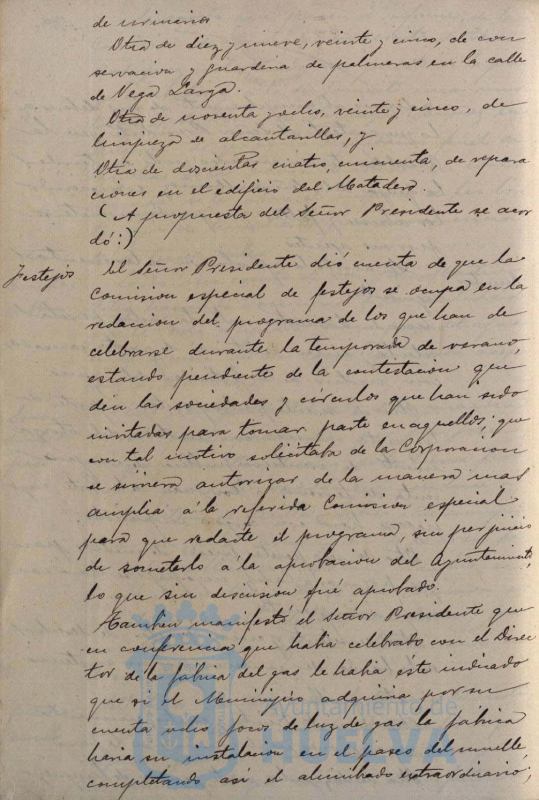 de urinarios
Otra de diez y nueve, veinte y cinco, de con
servacion y guarderia de palmeras en la calle
de Vega Larga.
Otra de noventa y ocho, veinte y cinco, de
limpieza de alcantarillas, y
Otra de doscuentas cuatro, cincuenta, de repara
ciones en el edificio del Matadero.
(A propuesta del Señor Presidente se acor
dó:)
Festejos
El Señor Presidente dió cuenta de que la
Comision especial de festejos se ocupa en la
redaccion del programa de los que han de
celebrarse durante la temporada de verano,
estando pendiente de la contestacion que
den las sociedades y círculos que han sido
invitadas para tomar parte en aquellos; que
con tal motivo solicitaba de la Corporacion
se sirviera autorizar de la manera mas
amplia á la referida Comision especial
para que redacte el programa, sin perjuicio
de someterlo á la aprobacion del Ayuntamiento,
lo que sin discusion fué aprobado.
Tambien manifestó el Señor Presidente que
en conferencia que habia celebrado con el Direc
tor de la fábrica del gas le habia éste indicado
que si el Municipio adquiria por su
cuenta ocho focos de luz de gas la fábrica
haria su instalacion en el paseo del muelle,
completando asi el alumbrado extraordinario;
Ayuntamiento de
HUELVA